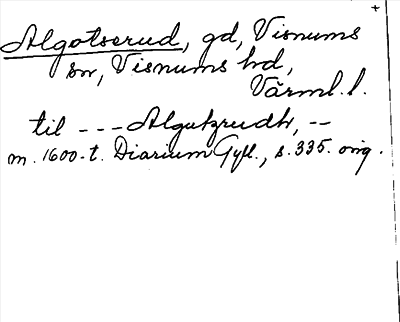 +
Algotserud, gd, Visnums
sn, Visnums hd,
Värml. l.
til --- Algutzrudh, --
m. 1600-t. Diarium Gyll., s. 335. orig.